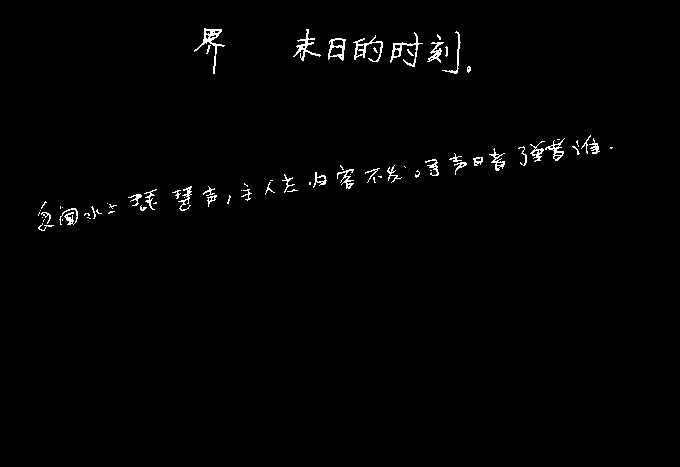 界 末日的时刻.
忽闻水上琵琶声,主人忘归客不发。寻声暗者弹者谁.